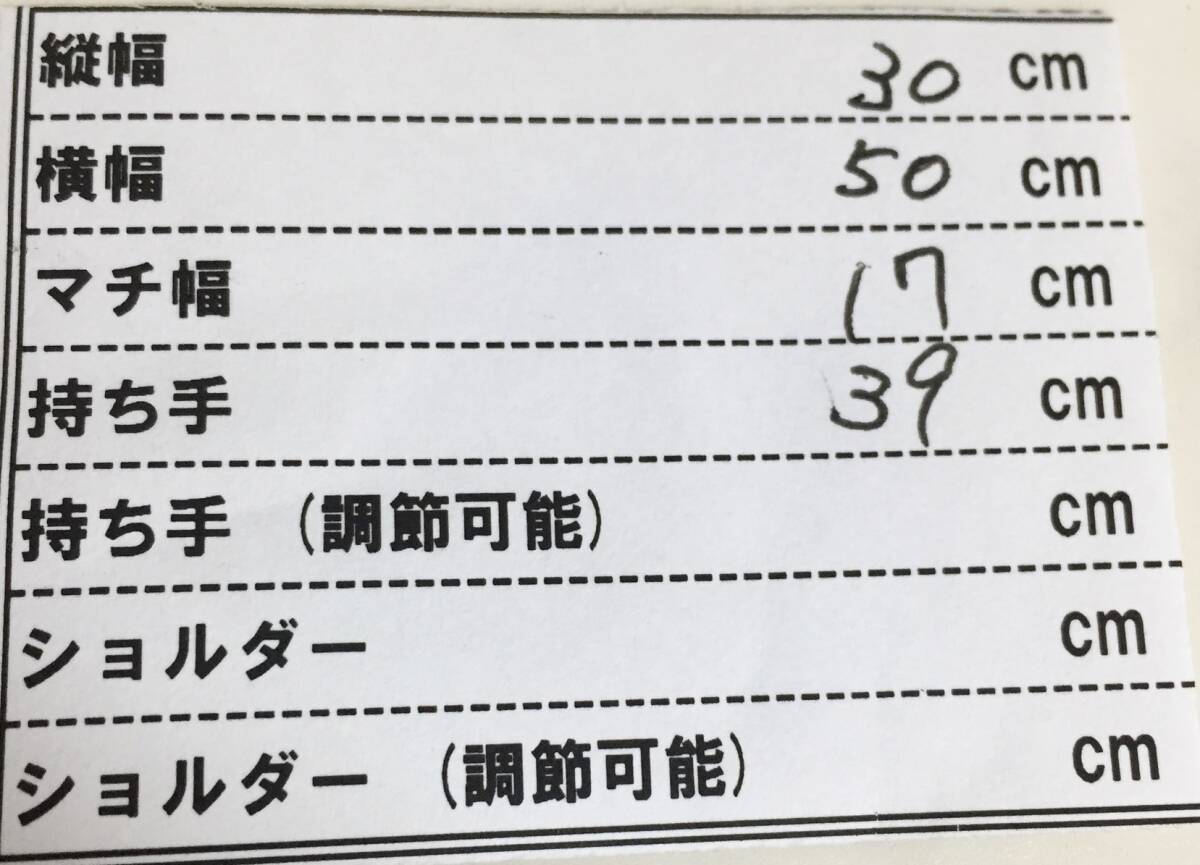 縦幅 30 cm
横幅 50 cm
マチ幅 17 cm
持ち手 39 cm
持ち手 (調節可能) cm
ショルダー cm
ショルダー (調節可能) cm